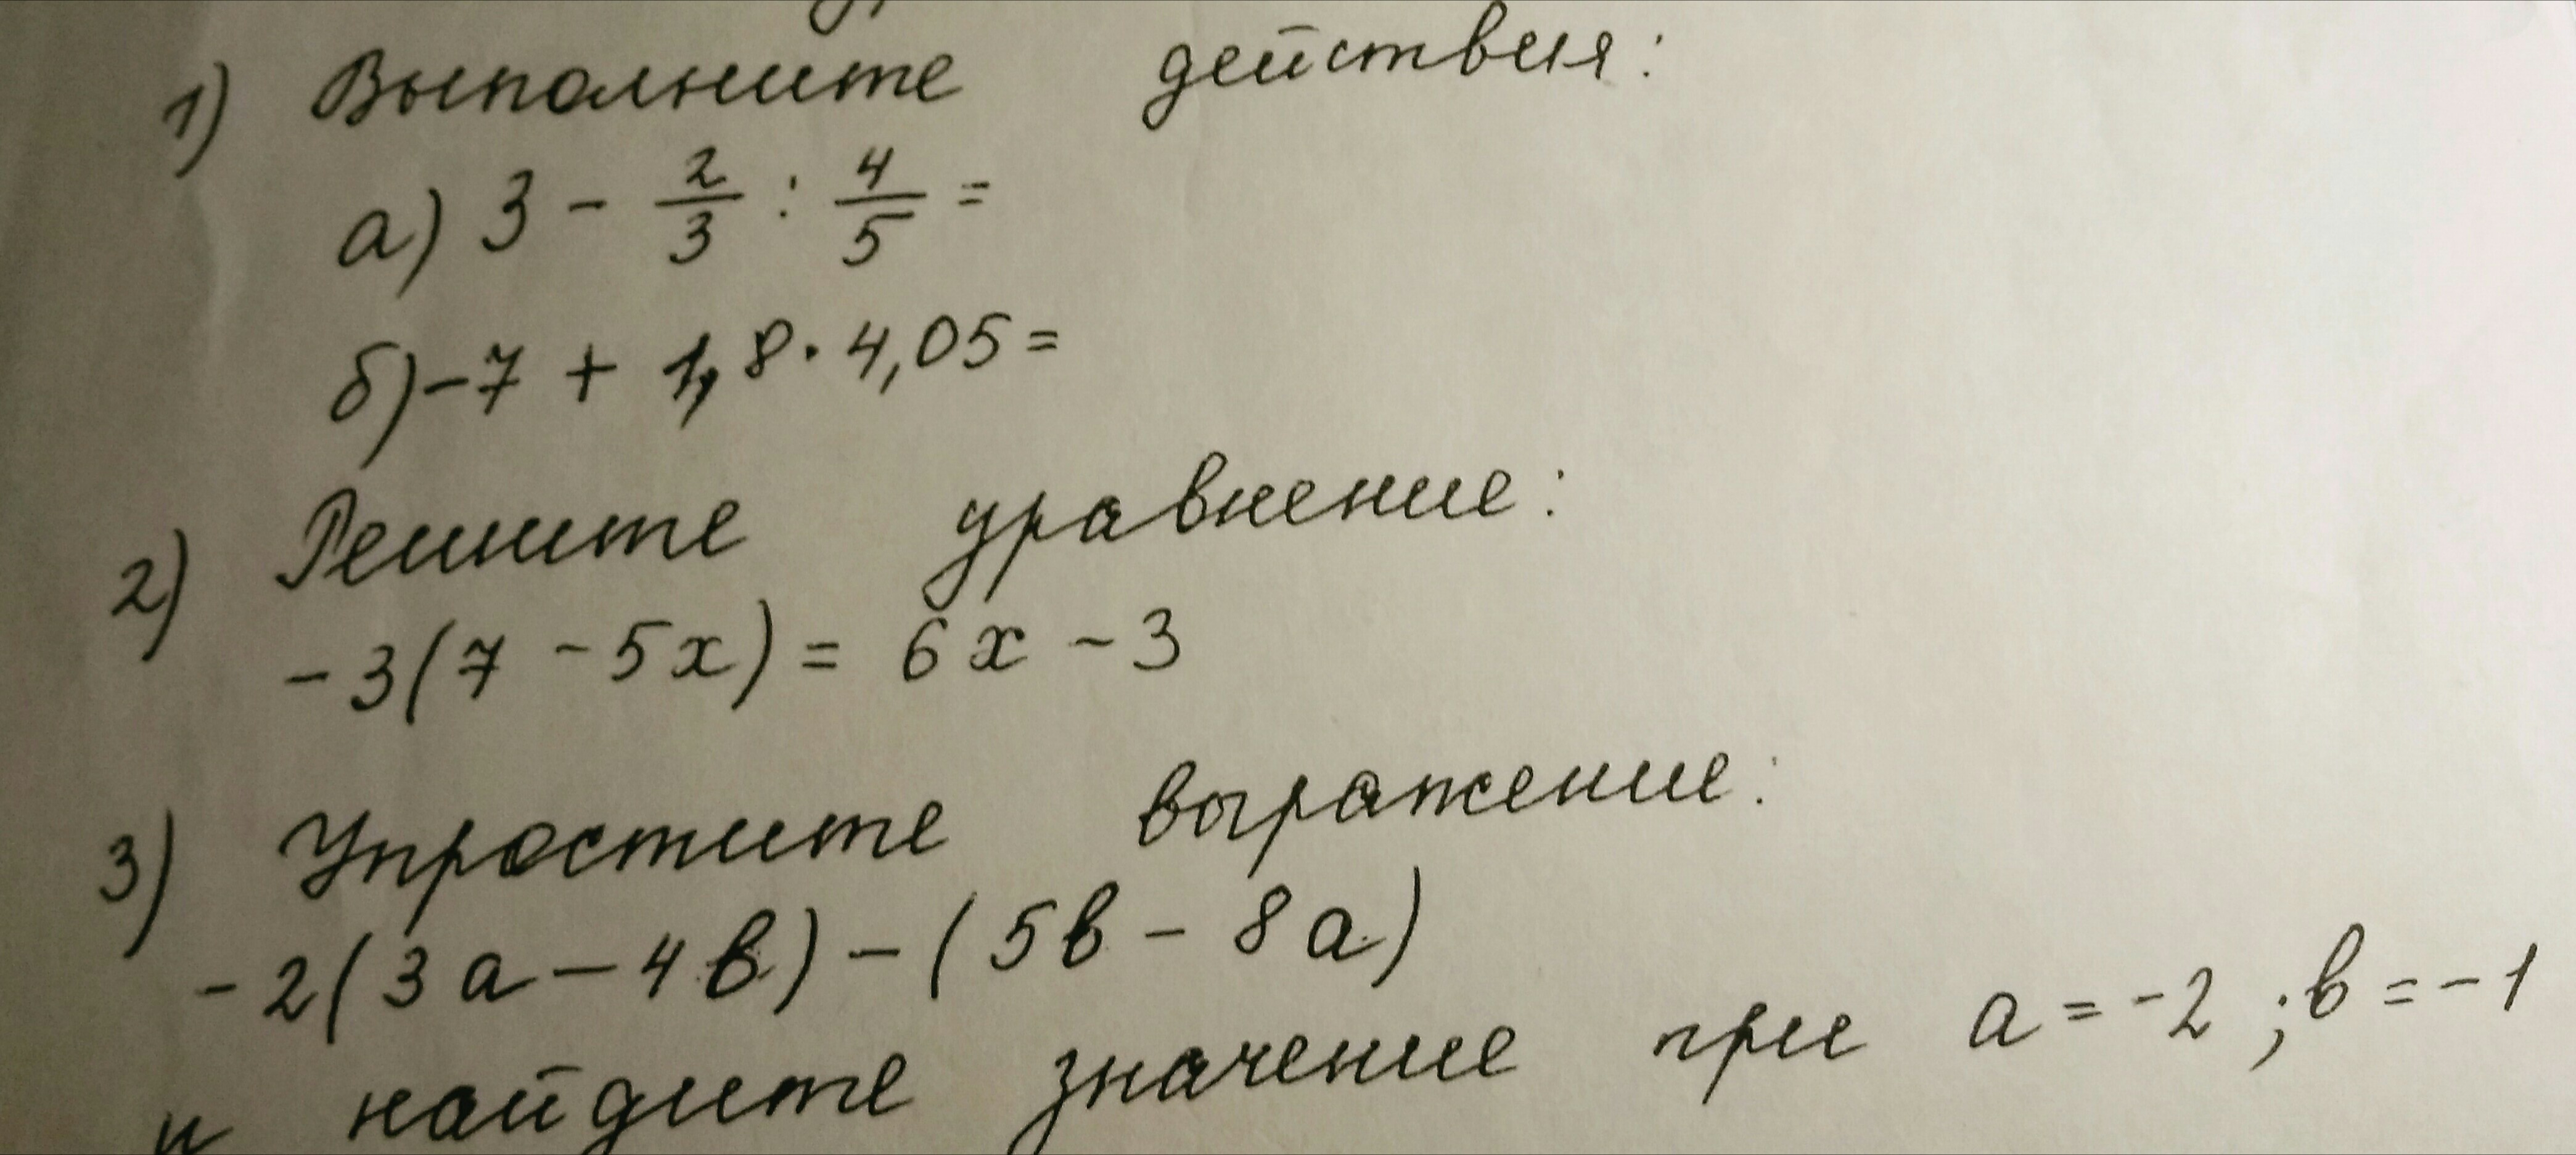 1) Выполните действия:
а) 3 - 2/3 : 4/5 =
б) -7 + 1,8 · 4,05 =
2) Решите уравнение:
-3(7 - 5x) = 6x - 3
3) Упростите выражение:
-2(3a - 4в) - (5в - 8a)
и найдите значение при a = -2 ; в = -1